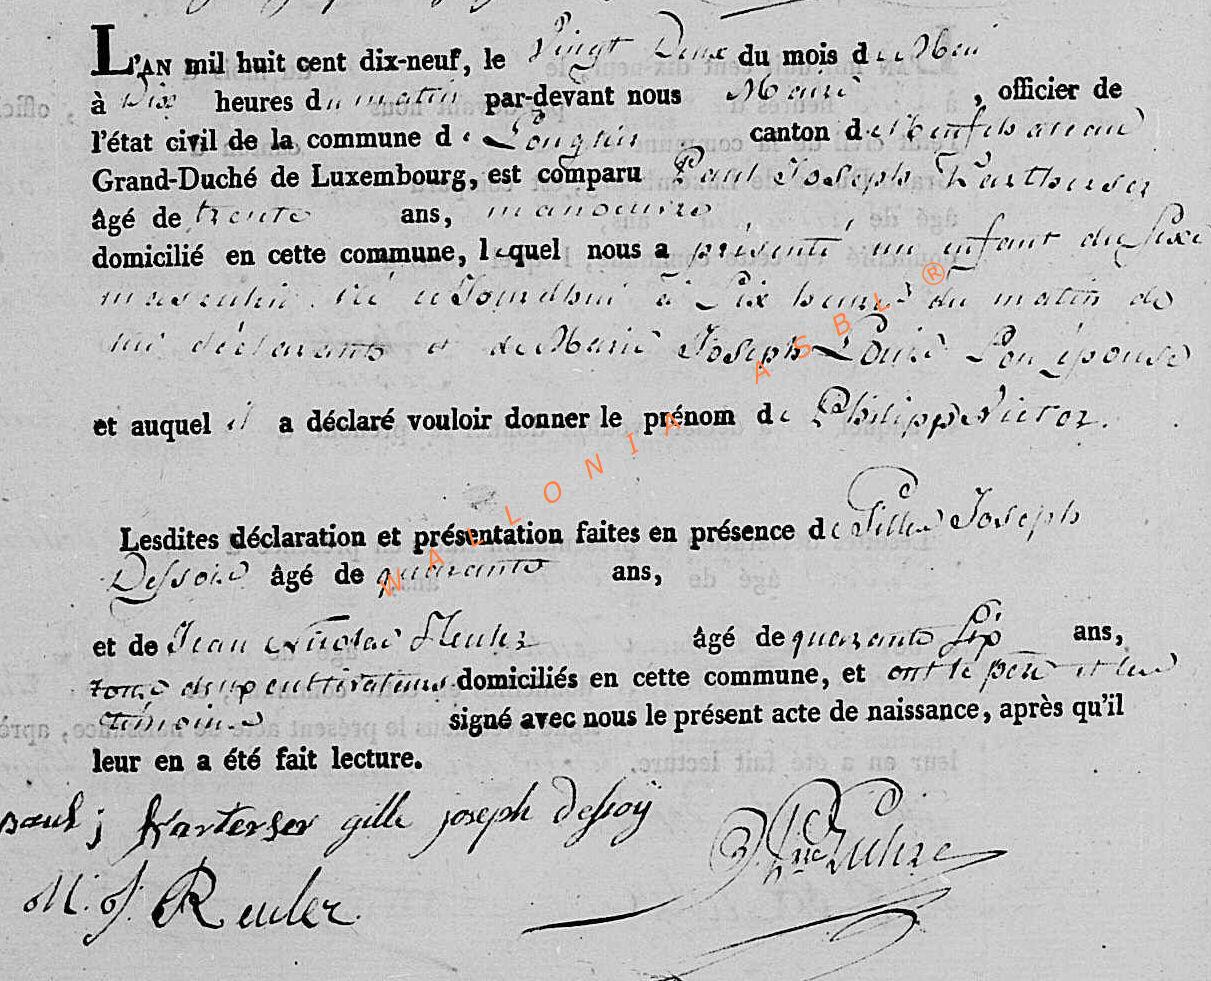 L'AN mil huit cent dix-neuf, le Vingt Deux du mois de Mai
à Dix heures du matin par-devant nous Maire, officier de
l'état civil de la commune de Longlier canton de Neufchateau
Grand-Duché de Luxembourg, est comparu Paul Joseph
âgé de trente ans, manoeuvre
domicilié en cette commune, lequel nous a présenté un enfant du sexe
masculin né à Six heures du matin de
lui déclarant et de Marie Joseph Son épouse
et auquel il a déclaré vouloir donner le prénom de Philippe Victor.
Lesdites déclaration et présentation faites en présence de Gille Joseph
Dessoie âgé de quarante ans,
et de Jean Nicolas âgé de quarante Six ans,
tous deux cultivateurs domiciliés en cette commune, et ont le père et les
témoins signé avec nous le présent acte de naissance, après qu'il
leur en a été fait lecture.
paul j Karterser gille joseph Dessoÿ
WALLONIA ASBL ®